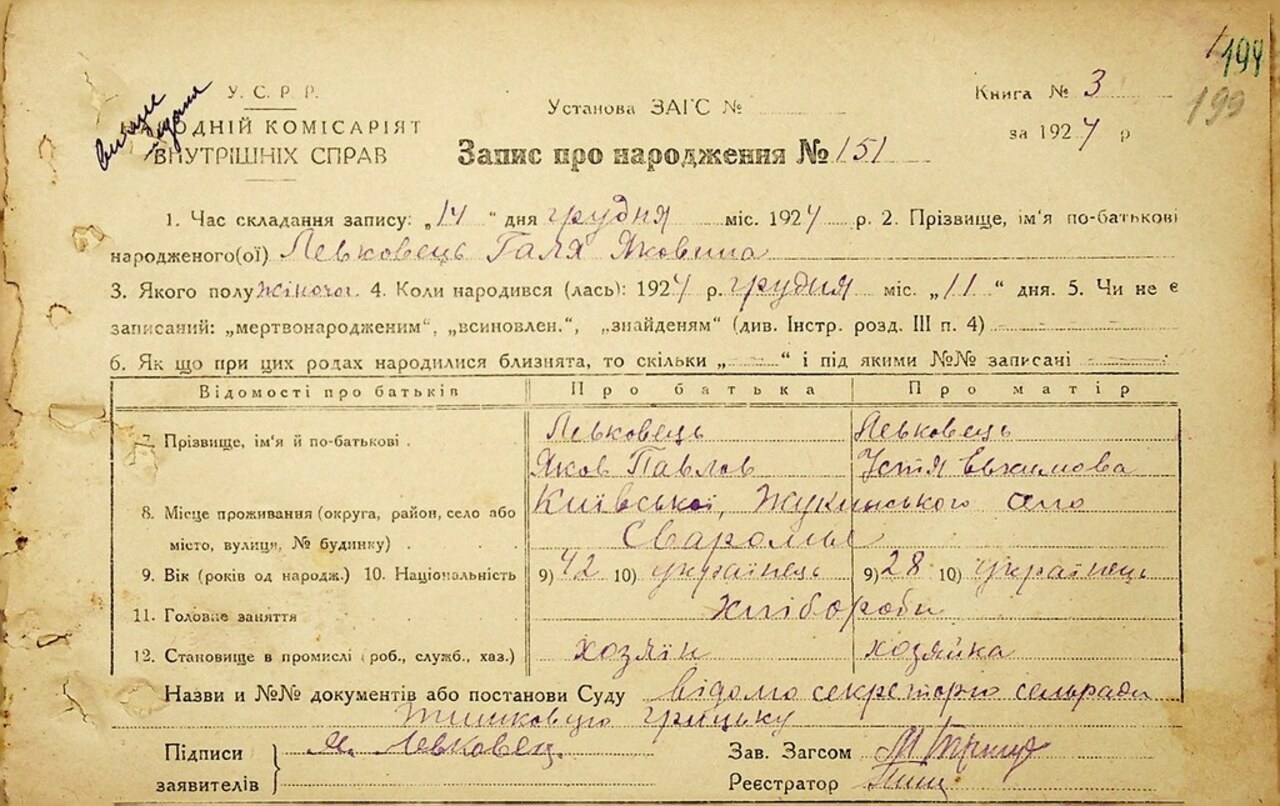 194
199
У. С. Р. Р.
ОДНІЙ КОМІСАРІЯТ
ВНУТРІШНІХ СПРАВ
Установа ЗАГС №
Книга № 3
за 1924 р
Запис про народження № 151
1. Час складання запису: „14“ дня грудня міс. 1924 р. 2. Прізвище, ім'я по-батькові
народженого(ої) Левковець Галя Яковина
3. Якого полу жіночог. 4. Коли народився (лась): 1924 р. грудня міс. „11“ дня. 5. Чи не є
записаний: „мертвонародженим“, „всиновлен.“, „знайденям“ (див. Інстр. розд. III п. 4)
6. Як що при цих родах народилися близнята, то скільки „ “ і під якими №№ записані
Відомості про батьків Про батька Про матір
7. Прізвище, ім'я й по-батькові . Левковець Левковець
Яков Павлов Устя Евхимова
8. Місце проживання (округа, район, село або Київської, Жукинського
місто, вулиця, № будинку) . Сваромье
9. Вік (років од народж.) 10. Національність 9) 42 10) українець 9) 28 10) українець
11. Головне заняття Хлібороби
12. Становище в промислі (роб., служб., хаз.) хозяїн хозяйка
Назви и №№ документів або постанови Суду відомо секреторю сельради
грицьку
Підписи Я. Левковец. Зав. Загсом
заявителів Реєстратор